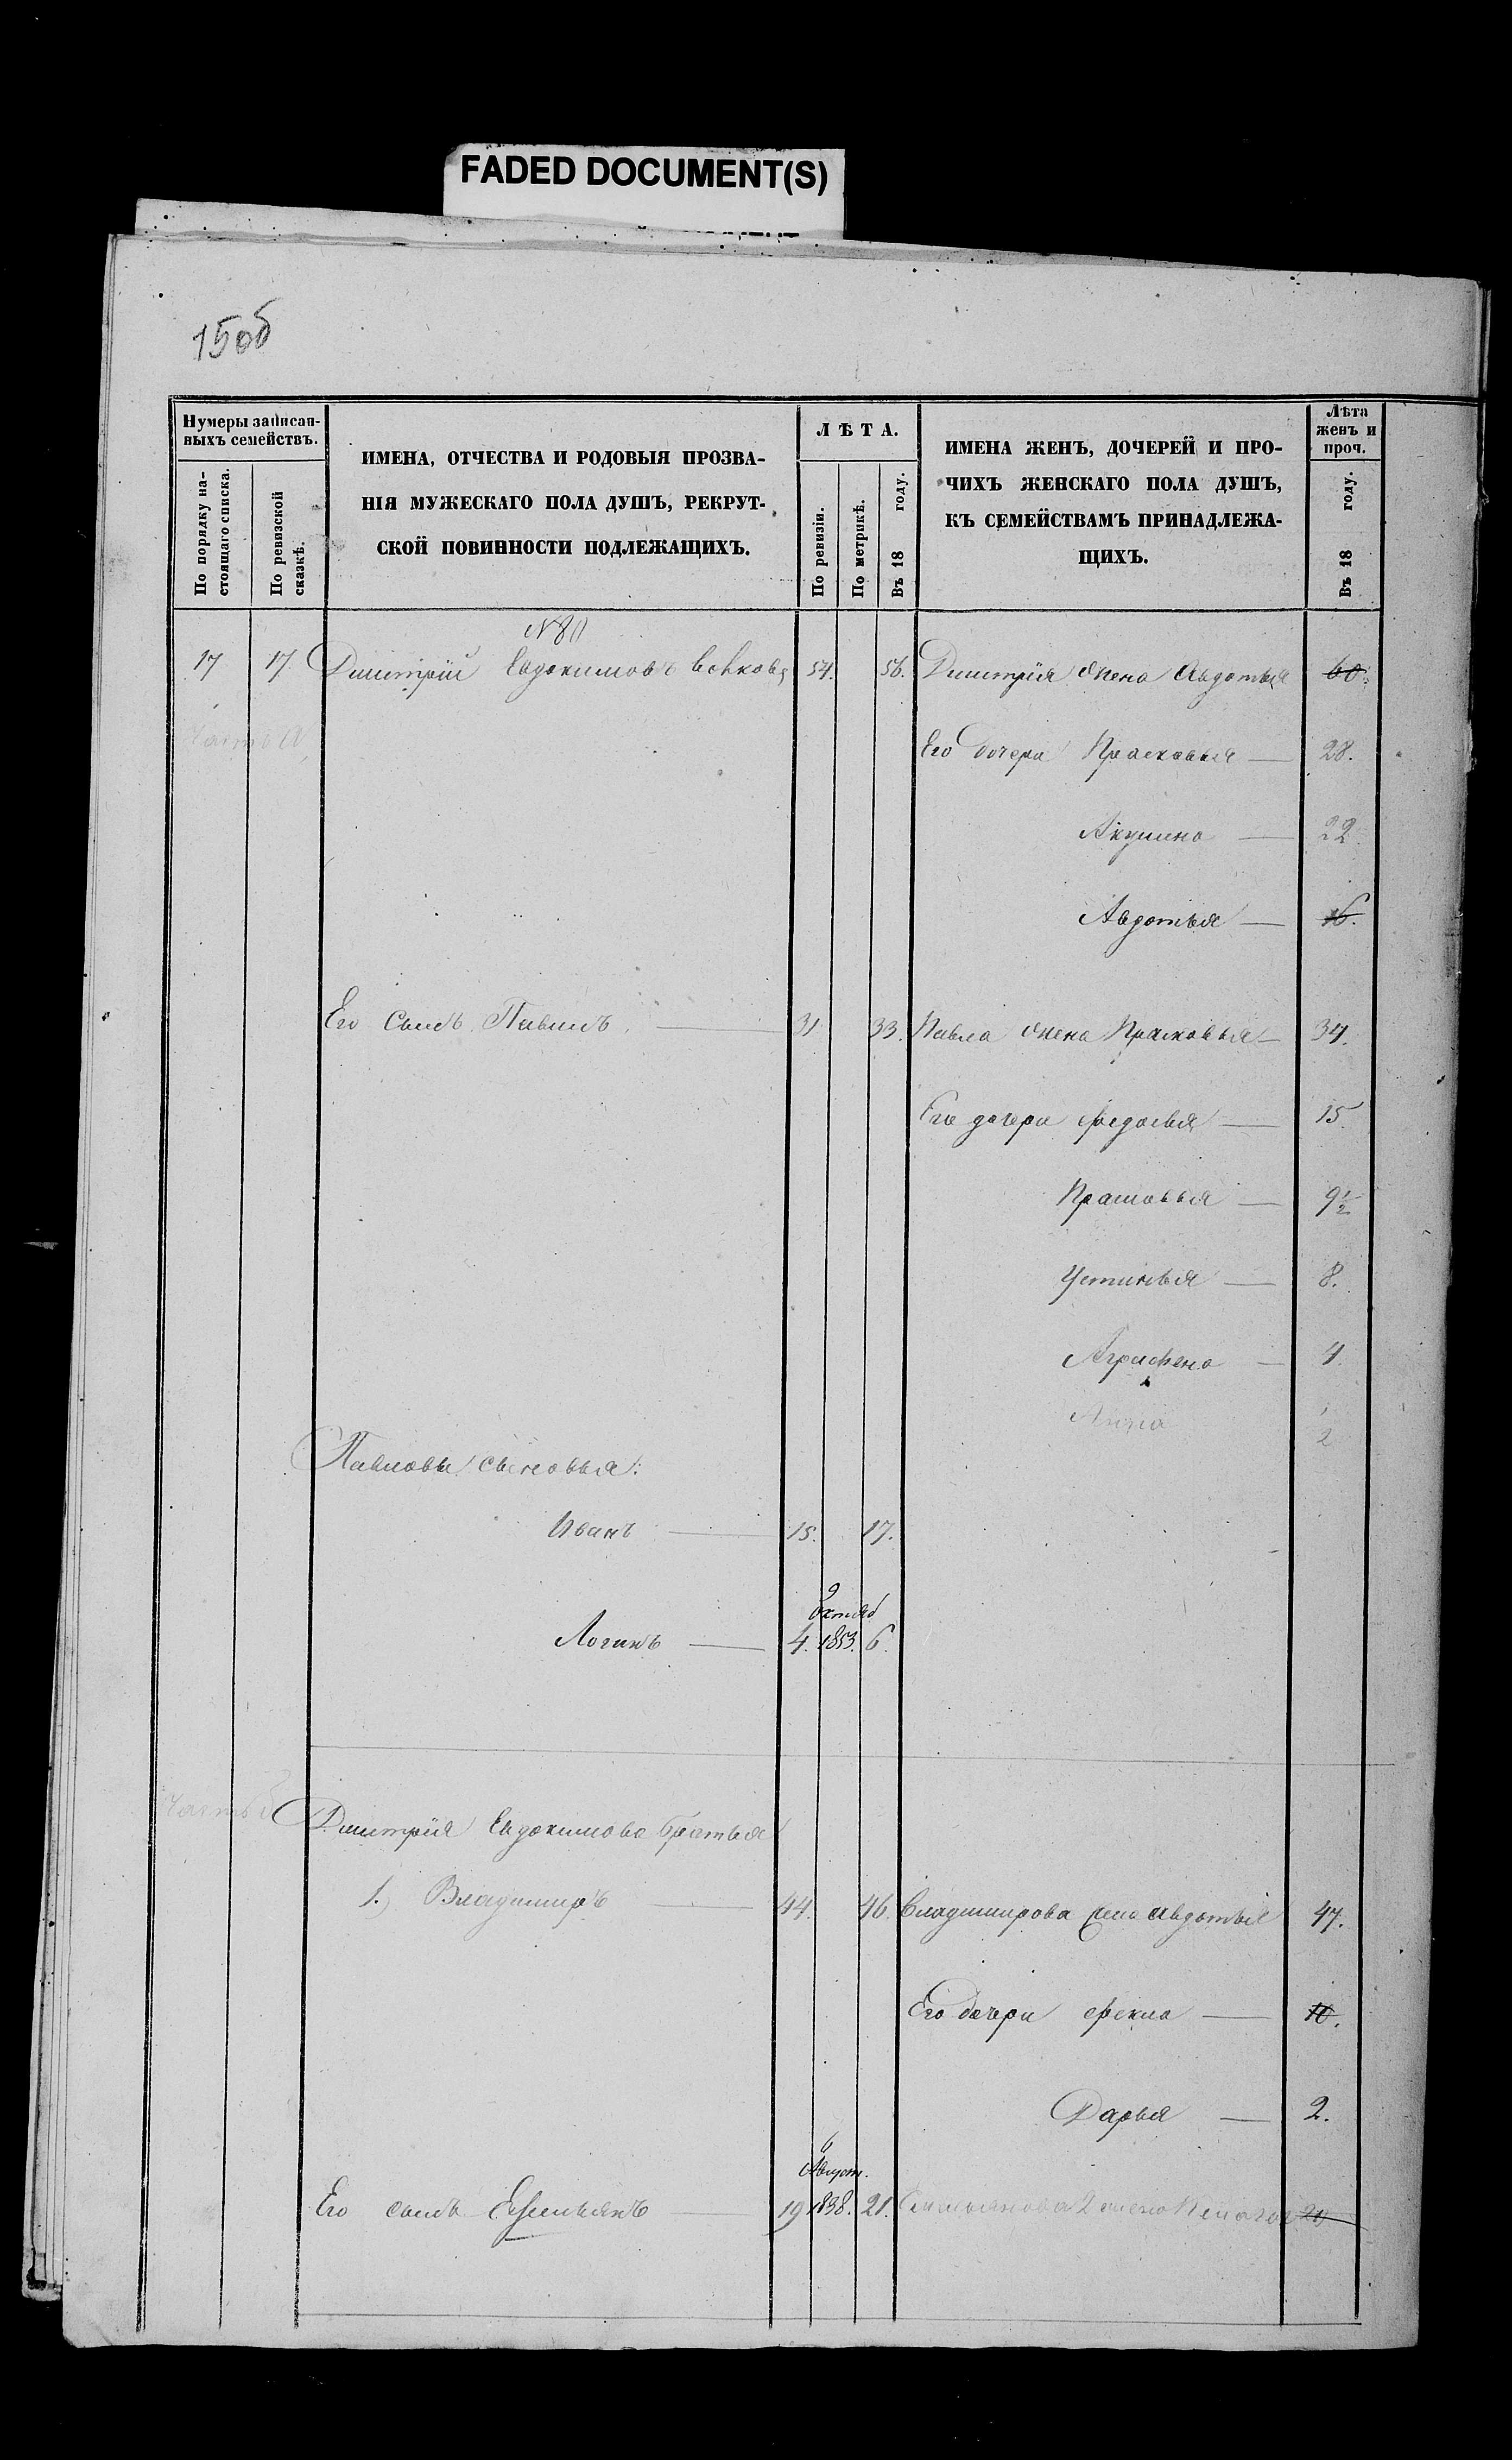 FADED DOCUMENT(S)
150б
Нумеры записан-
ныхъ семействъ.
По порядку на-
стоящаго списка.
По ревизской
сказкѣ.
ИМЕНА, ОТЧЕСТВА И РОДОВЫЯ ПРОЗВА-
НІЯ МУЖЕСКАГО ПОЛА ДУШЪ, РЕКРУТ-
СКОЙ ПОВИННОСТИ ПОДЛЕЖАЩИХЪ.
ЛѢТА.
По ревизіи.
По метрикѣ.
Въ 18 году.
ИМЕНА ЖЕНЪ, ДОЧЕРЕЙ И ПРО-
ЧИХЪ ЖЕНСКАГО ПОЛА ДУШЪ,
КЪ СЕМЕЙСТВАМЪ ПРИНАДЛЕЖА-
ЩИХЪ.
Лѣта
женъ и
проч.
Въ 18 году.
17 17 Дмитрій Евдокимовъ 54. 56. Дмитрія жена Авдотья 60.
Часть А
Его дочери Прасковья — 28.
Акулина — 22.
Авдотья — 16.
Его Сынъ Павелъ — 31 33. Павла жена Прасковья — 34.
Его дочери Федосья — 15.
Прасковья — 9½
Устинья — 8.
Аграфена — 4
Анна ½
Павловы сыновья:
Иванъ — 15. 17.
9
Октяб
Логинъ — 4. 1853. 6.
Часть
Дмитрія Евдокимова братья
1. Владимиръ — 44. 46. Владимирова жена Авдотья 47.
Его дочери Фекла — 10.
Дарья — 2.
6
Август.
Его сынъ Емельянъ — 19 1838. 21. Емельянова жена Пелагея 20